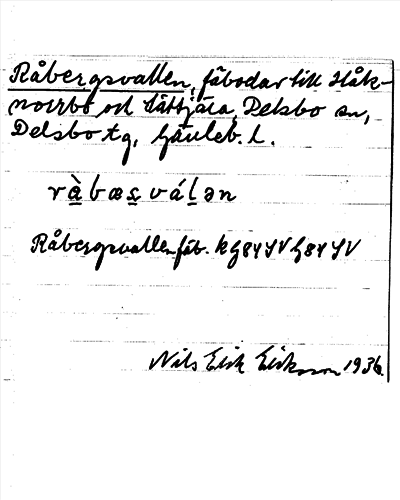 Råbergsvallen, fäbodar till Håk-
norrbo och Lättjära, Delsbo sn,
Delsbo tg, Gävleb. l.
ràbæs̱váḻən
Råbergsvallen fäb. kG84SV G84SV
Nils Erik Eriksson 1936.